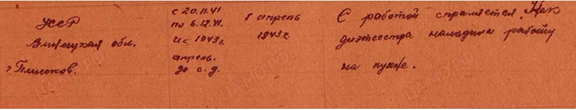 УССР
Винницкая обл.
г. Плисков.
с 20.11.41
по 6.12.41.
и с 1943 г.
апрель.
до с. д.
апрель
1943 г.
С работой справляется. Как
диэтсестра наладила работу
на кухне.